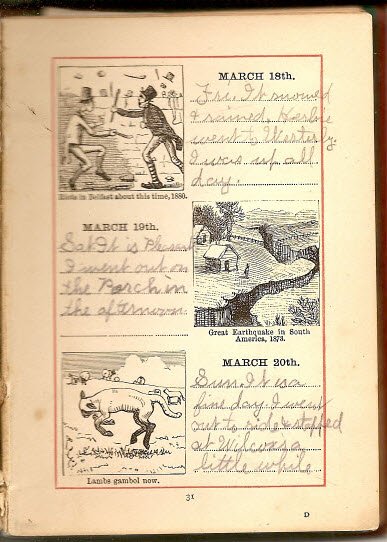 MARCH 18th.
Fri. It snowed
& rained. Herbie
went to Westerly.
I was up all
day.
Riots in Belfast about this time, 1880.
MARCH 19th.
Sat It is Pleasant
I went out on
the Porch in
the afternoon.
Great Earthquake in South
America, 1873.
MARCH 20th.
Sun. It is a
fine day I went
out to ride & stopped
at Wilcox's a
little while
Lambs gambol now.
31
D